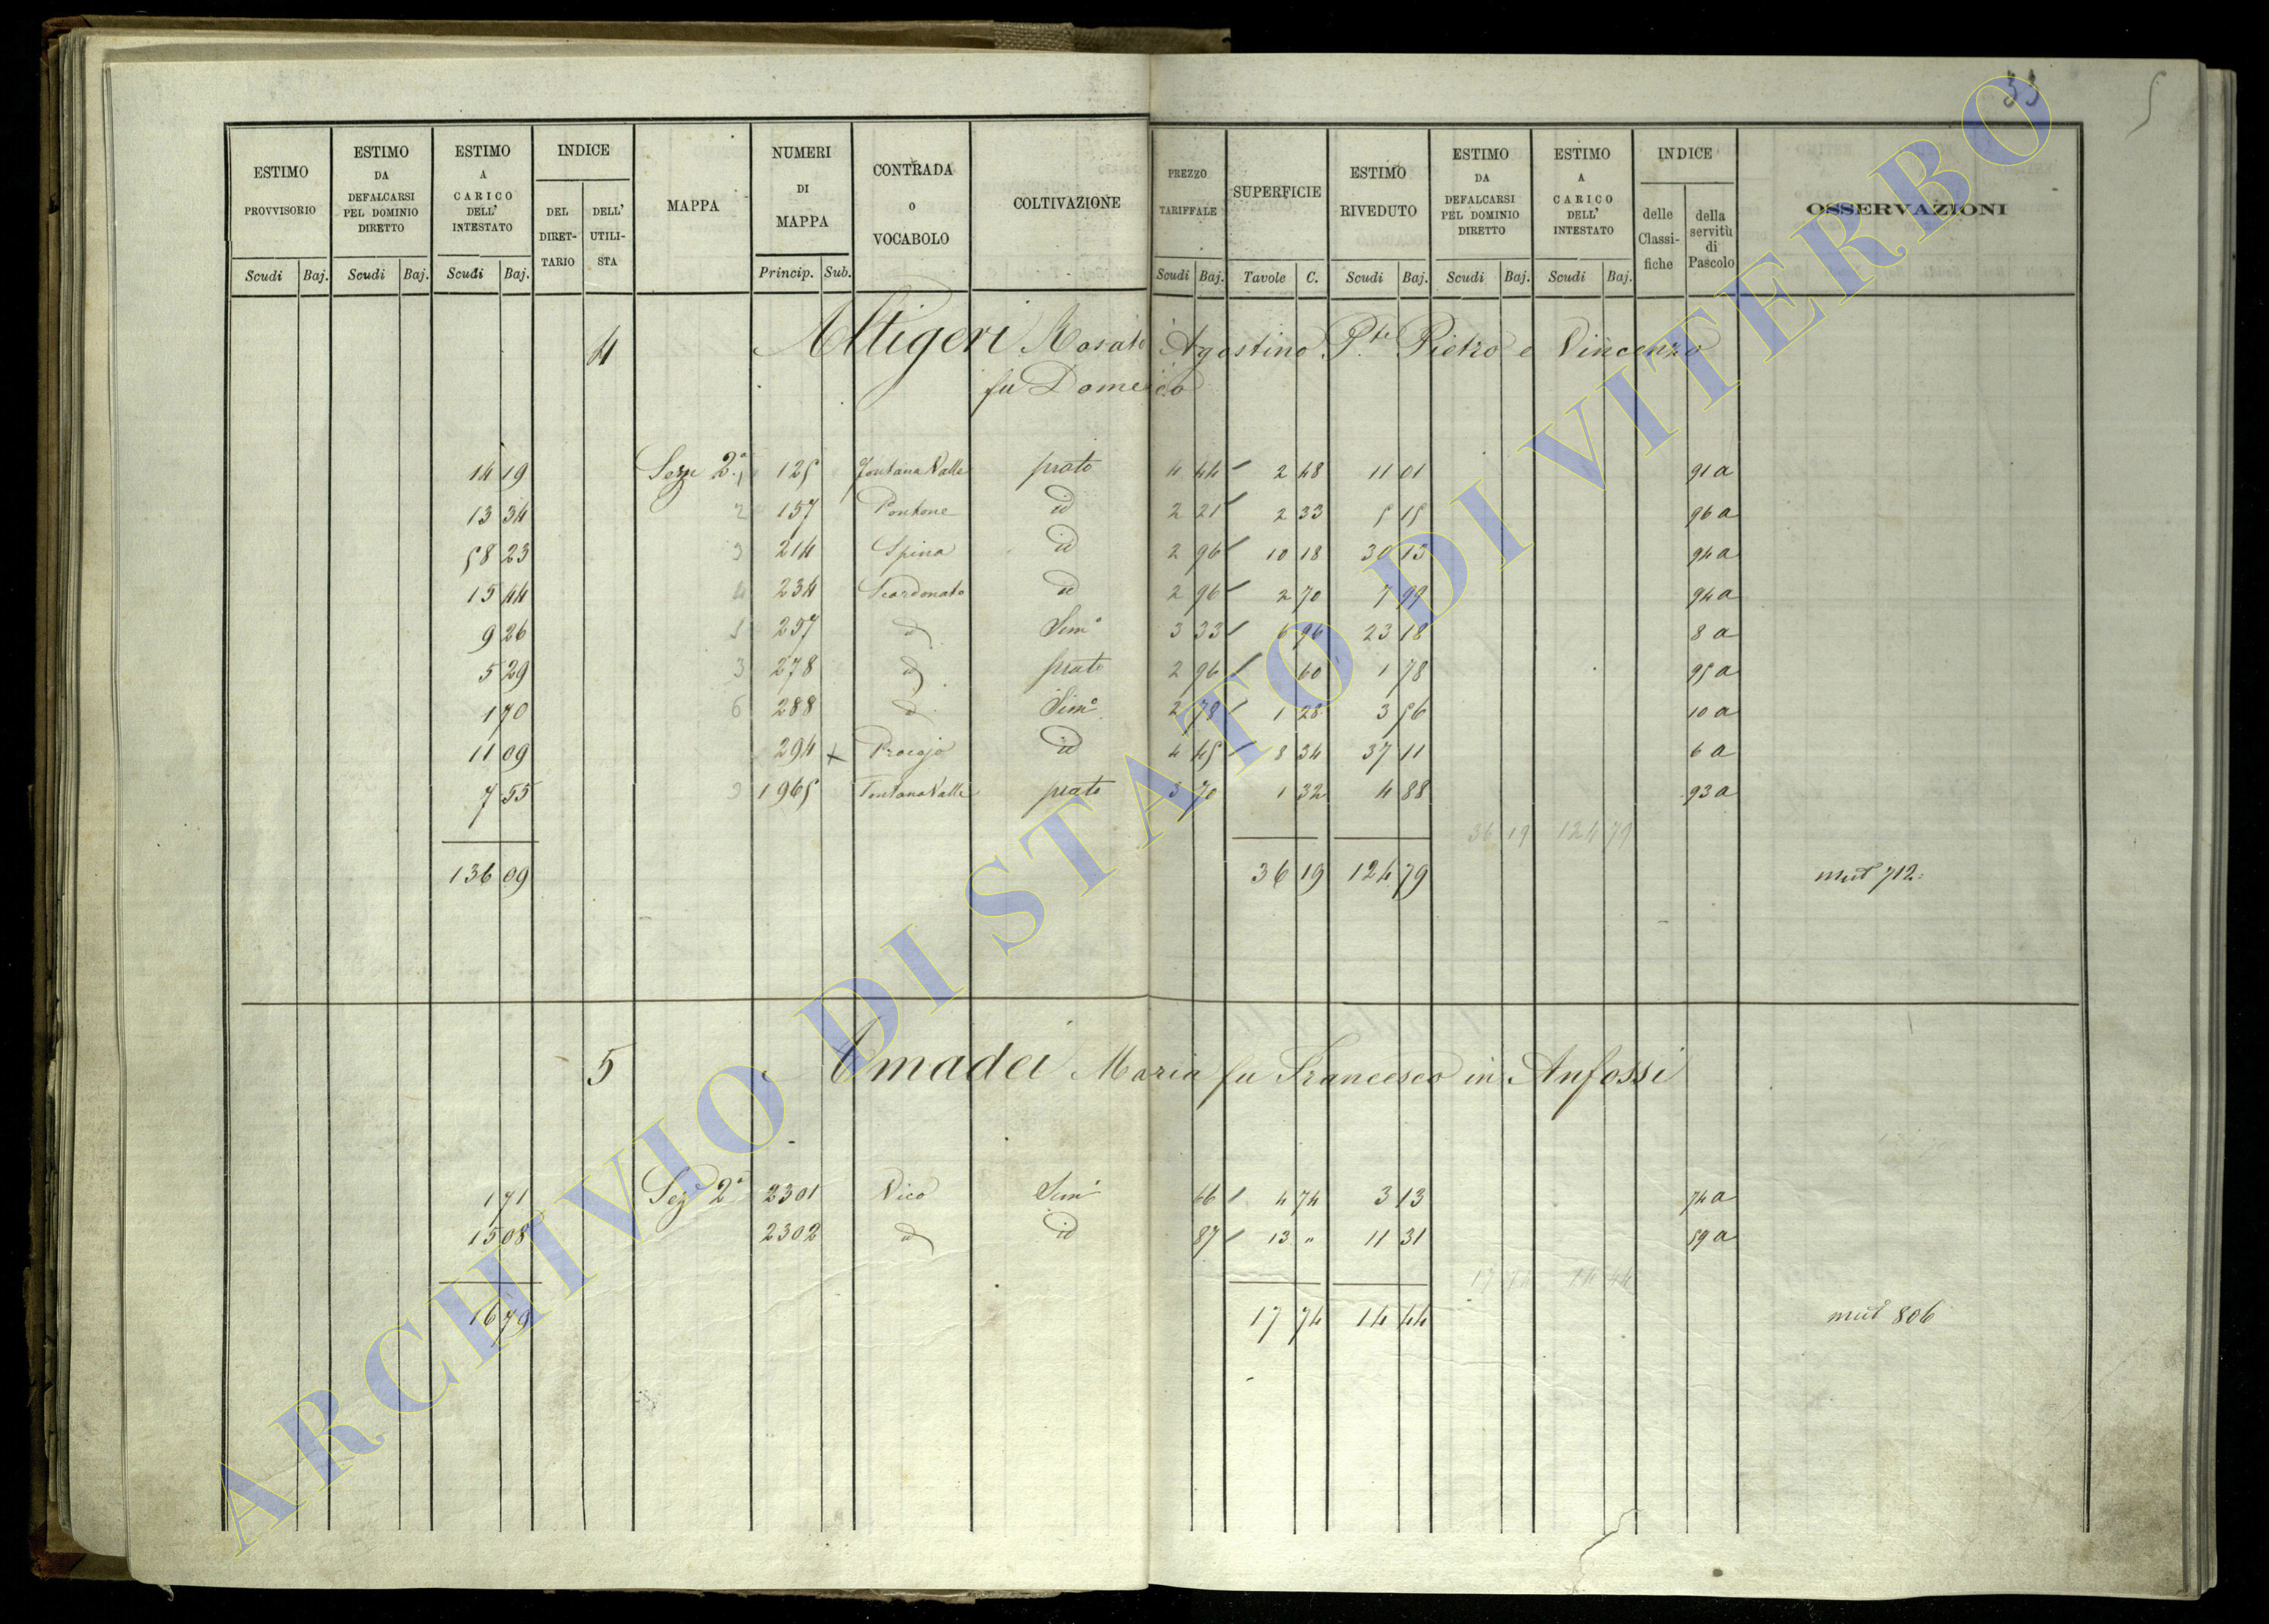 33
5
ESTIMO PROVVISORIO | ESTIMO DA DEFALCARSI PEL DOMINIO DIRETTO | ESTIMO A CARICO DELL' INTESTATO | INDICE | MAPPA | NUMERI DI MAPPA | CONTRADA o VOCABOLO | COLTIVAZIONE | PREZZO TARIFFALE | SUPERFICIE | ESTIMO RIVEDUTO | ESTIMO DA DEFALCARSI PEL DOMINIO DIRETTO | ESTIMO A CARICO DELL' INTESTATO | INDICE | OSSERVAZIONI
DEL DIRETTARIO | DELL' UTILISTA | delle Classifiche | della servitù di Pascolo
Scudi | Baj. | Scudi | Baj. | Scudi | Baj. | Princip. | Sub. | Scudi | Baj. | Tavole | C. | Scudi | Baj. | Scudi | Baj. | Scudi | Baj.
4 Altigeri Rosato Agostino P.te Pietro e Vincenzo
fu Domenco
14 19 | Sezne 2a 1 | 125 | Fontana Valle | prato | 4 44 | 2 48 | 11 01 | 91 a
13 34 | 2 | 157 | Pontone | id | 2 21 | 2 33 | 5 15 | 96 a
58 23 | 3 | 214 | Spina | id | 2 96 | 10 18 | 30 13 | 94 a
15 44 | 4 | 234 | Scardonato | id | 2 96 | 2 70 | 7 99 | 94 a
9 26 | 5 | 257 | id | Sem° | 3 33 | 6 96 | 23 18 | 8 a
5 29 | 3 | 278 | id | prato | 2 96 | 60 | 1 78 | 95 a
1 70 | 6 | 288 | id | Sem° | 2 78 | 1 28 | 3 56 | 10 a
11 09 | 294 | + | Procojo | id | 4 45 | 8 34 | 37 11 | 6 a
7 55 | 3 | 1965 | Fontana Valle | prato | 3 70 | 1 32 | 4 88 | 93 a
36 19 | 124 79
136 09 | 36 19 | 124 79 | mut 712
5 Amadei Maria fu Francesco in Anfossi
1 71 | Sezne 2a | 2301 | Vico | Sem° | 66 | 4 74 | 3 13 | 74 a
15 08 | 2302 | id | id | 87 | 13 " | 11 31 | 59 a
17 74 | 14 44
16 79 | 17 74 | 14 44 | mut 806
ARCHIVIO DI STATO DI VITERBO